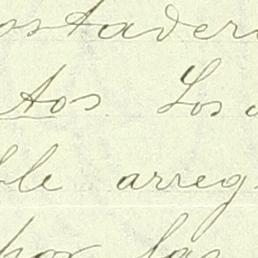 ostader
tos los
ble arreg
por las